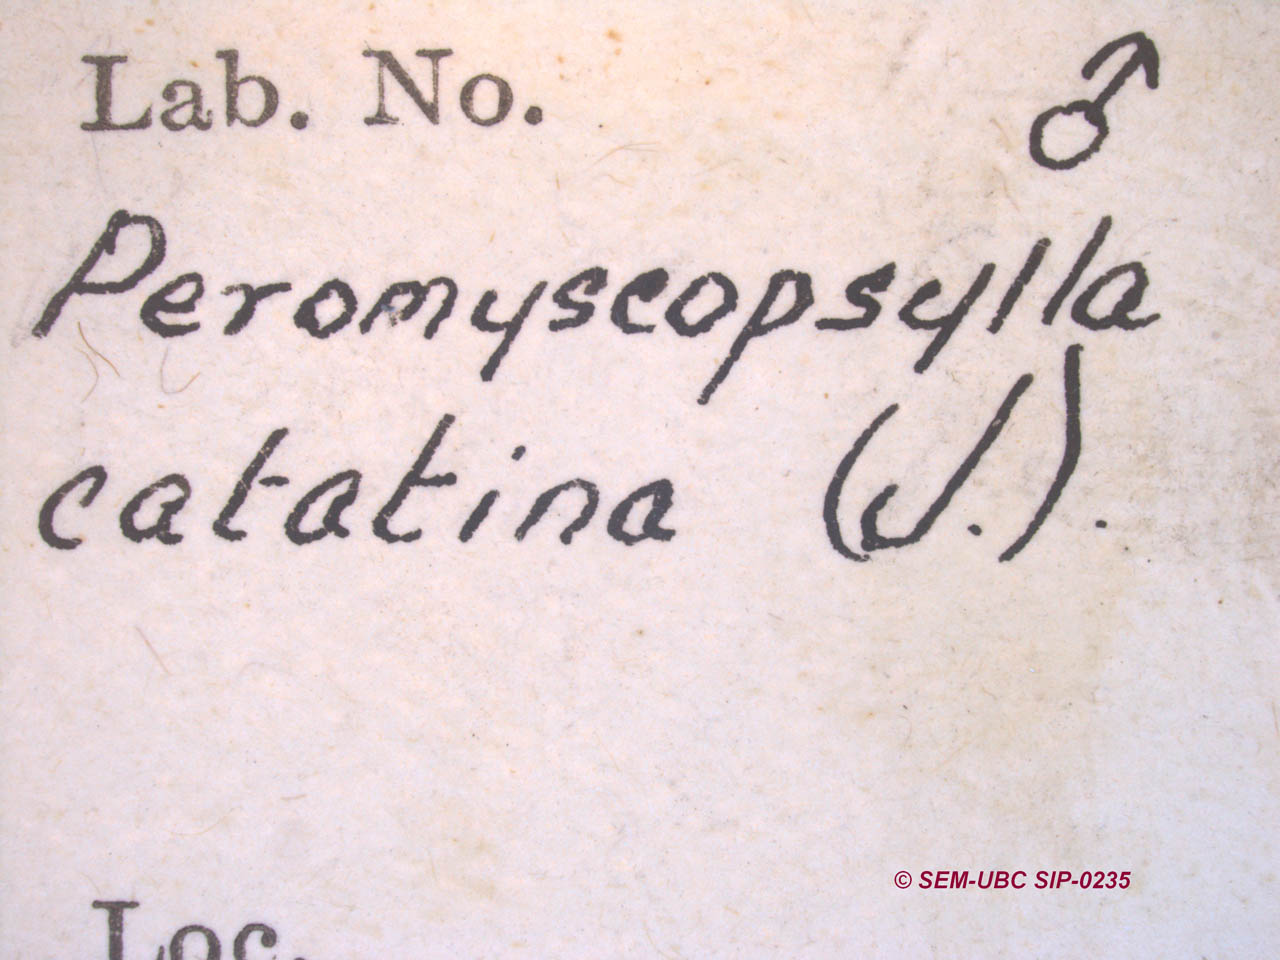 Lab. No. ♂
Peromyscopsylla
catatina (J.).
© SEM-UBC SIP-0235
Loc.